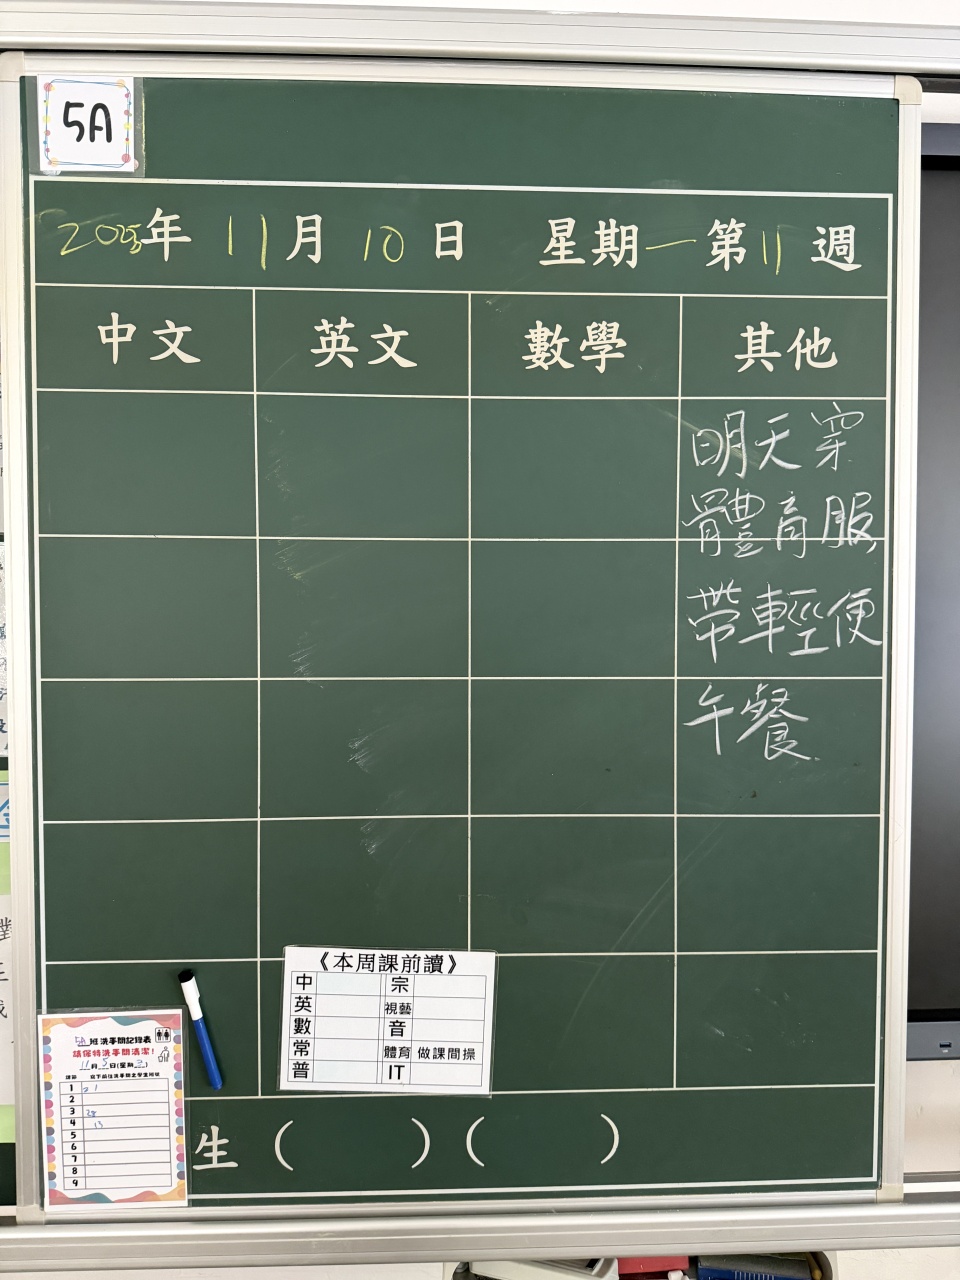 5A
2025年 11月 10日 星期一 第11週
中文 英文 數學 其他
明天穿
體育服,
帶輕便
午餐.
《本周課前讀》
中 宗
英 視藝
數 音
常 體育 做課間操
普 IT
5A班洗手間記錄表
請保持洗手間清潔!
11月5日(星期三)
課節 寫下前往洗手間之學生班號
1 21
2
3 28
4 13
5
6
7
8
9
生 ( ) ( )